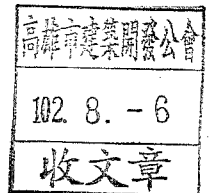 高雄市建築開發公會
102. 8. - 6
收文章